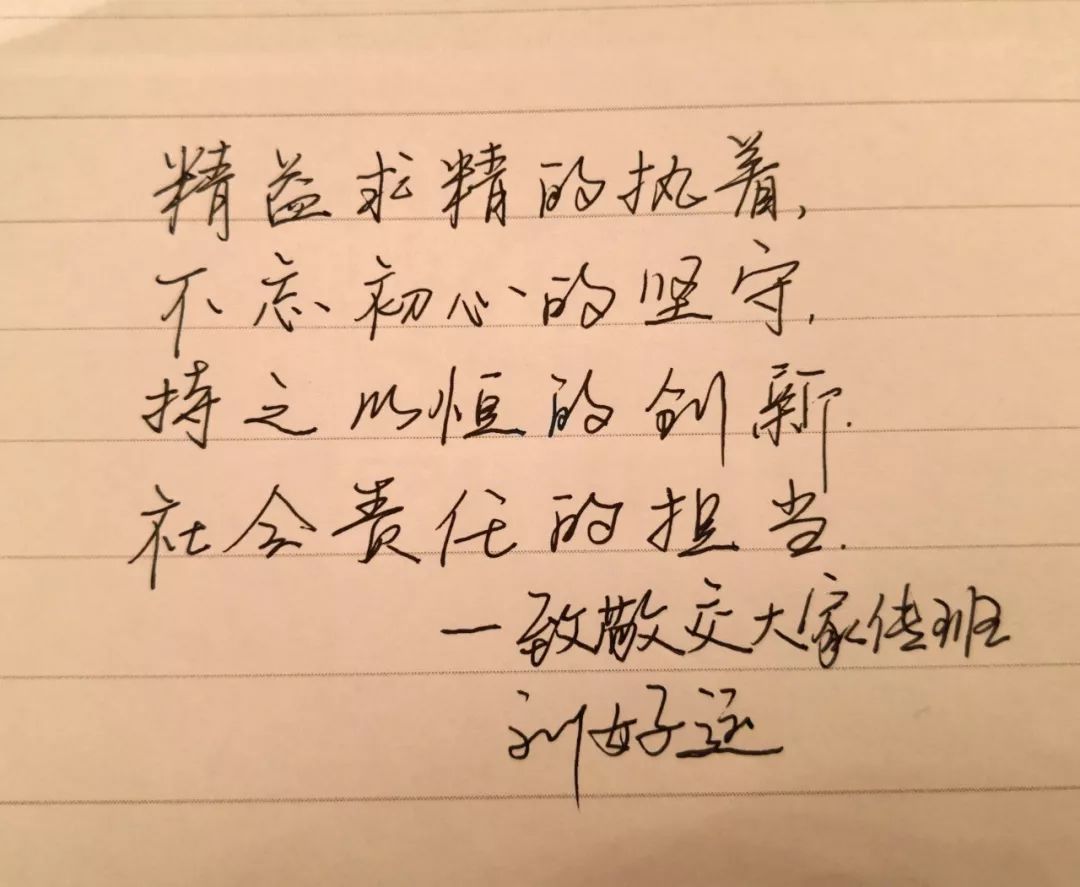 精益求精的执着,
不忘初心的坚守,
持之以恒的创新.
社会责任的担当.
—致敬交大家传班
刘好运